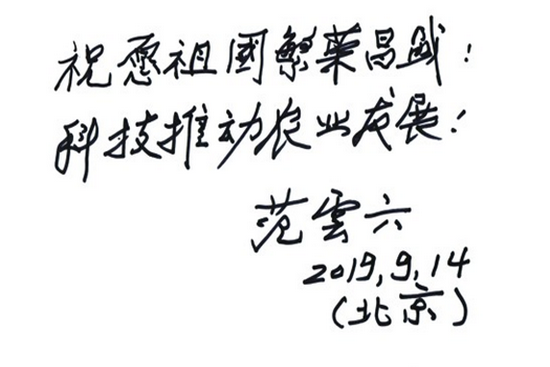 祝愿祖國繁荣昌盛!
科技推动农业发展!
范雲六
2019,9,14
(北京)